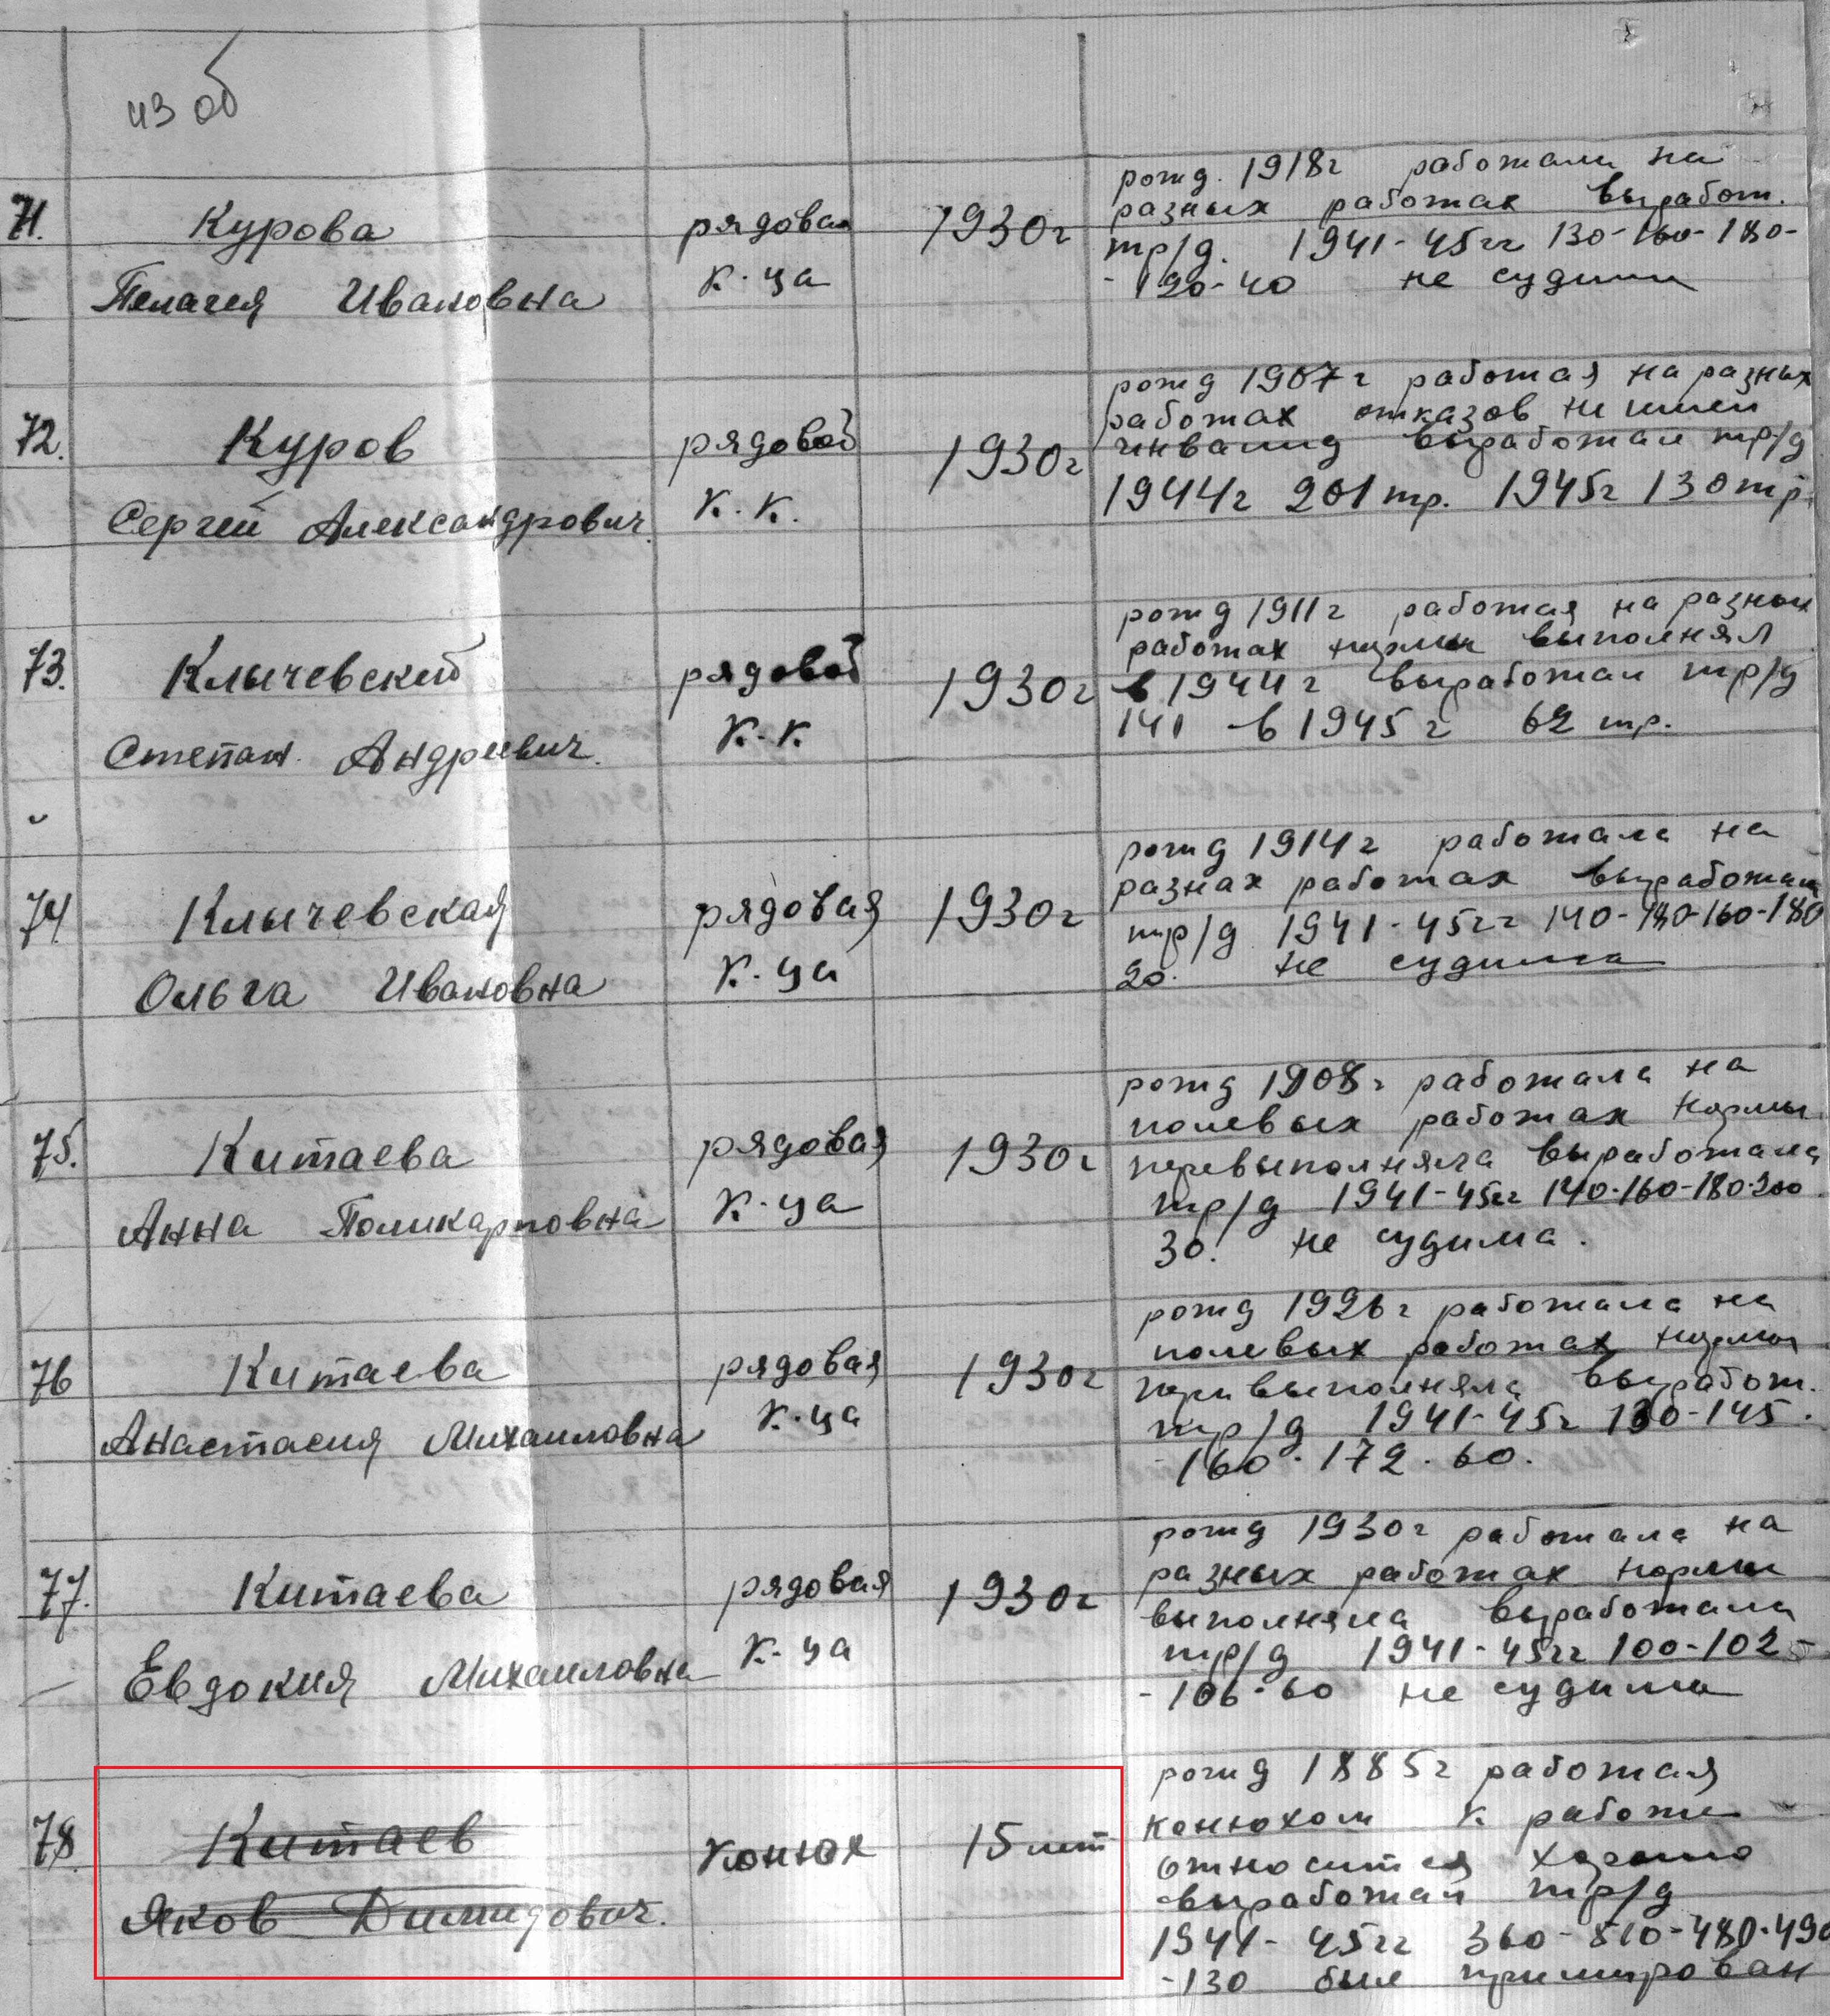 из об
71. Курова рядовая 1930г рожд. 1918г работала на
Пелагея Ивановна к-ца разных работах выработ.
тр/д. 1941-45гг 130-160-180-
-120-40 не судима
72. Куров рядовой 1930г рожд 1907г работая на разных
Сергей Александрович. к.к. работах отказов не имел
инвалид выработал тр/д
1944г 201тр. 1945г 130тр.
73. Клычевский рядовой 1930г рожд 1911г работая на разных
Степан. Андреевич. к.-к работах нормы выполнял
в 1944г выработал тр/д
141 в 1945г 62 тр.
74 Клычевская рядовая 1930г рожд 1914г работала на
Ольга Ивановна к-ца разнах работах выработала
тр/д 1941-45гг 140-130-160-180
20. не судима
75. Китаева рядовая 1930г рожд 1908г работала на
Анна Поликарповна к-ца полевых работах нормы
перевыполняла выработала
тр/д 1941-45гг 140-160-180-200
30. не судима.
76 Китаева рядовая 1930г рожд 1926г работала на
Анастасия Михаиловна к-ца полевых работах нормы
перевыполняла выработ.
тр/д 1941-45г 130-145.
160.172.60.
77. Китаева рядовая 1930г рожд 1930г работала на
Евдокия Михаиловна к-ца разных работах нормы
выполняла выработала
тр/д 1941-45гг 100-102-
-106-60 не судима
78. Китаев конюх 15 лет рожд 1885г работая
Яков Димидович. конюхом к работе
относится хорошо
выработал тр/д
1941-45гг 360-510-480-490
-130 был примирован